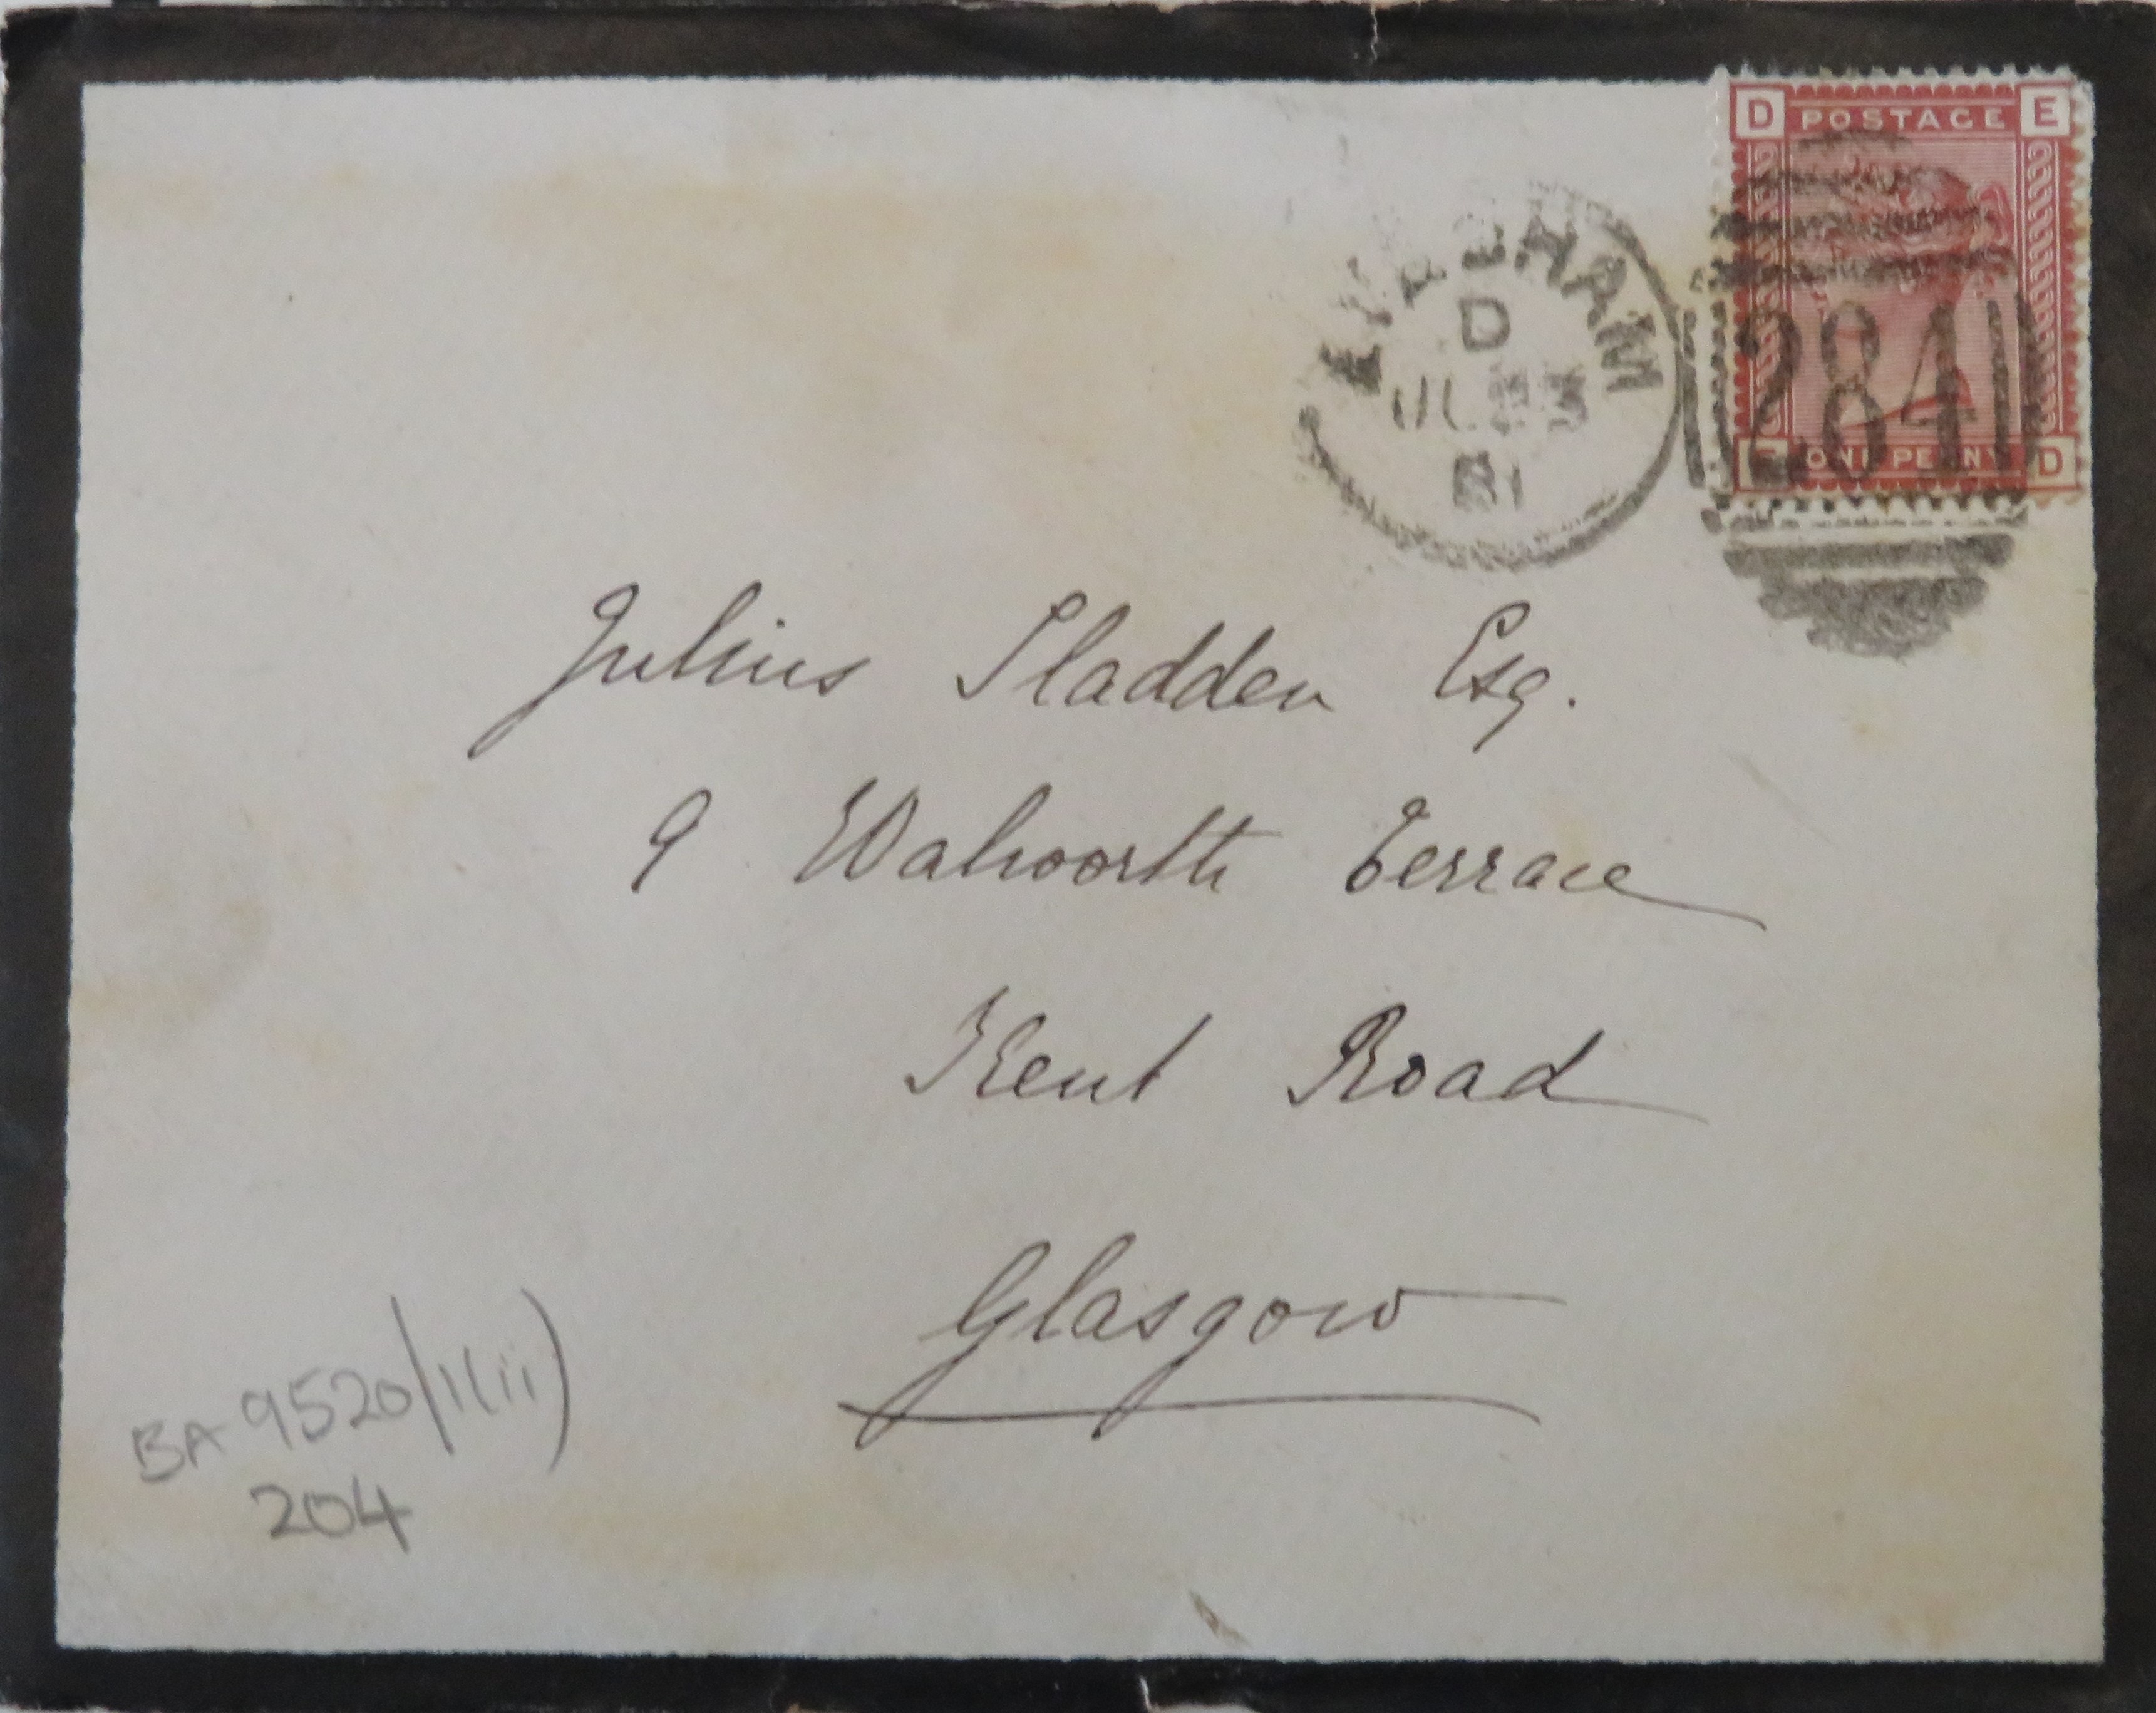 D POSTAGE E
D
JL 23
81
284
ONE PENNY D
Julius Sladden Esq.
9 Walworth Terrace
Kent Road
Glasgow
BA 9520/1(ii)
204